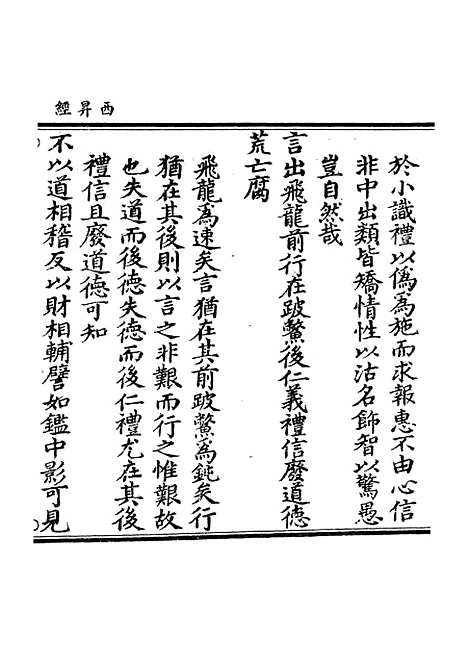 西昇經
於小識禮以偽為施而求報惠不由心信
非中出類皆矯情性以沽名飾智以驚愚
豈自然哉
言出飛龍前行在跛鱉後仁義禮信廢道德
荒亡腐
飛龍為速矣言猶在其前跛鱉為鈍矣行
猶在其後則以言之非艱而行之惟艱故
也失道而後德失德而後仁禮尤在其後
禮信且廢道德可知
不以道相稽反以財相輔譬如鑑中影可見